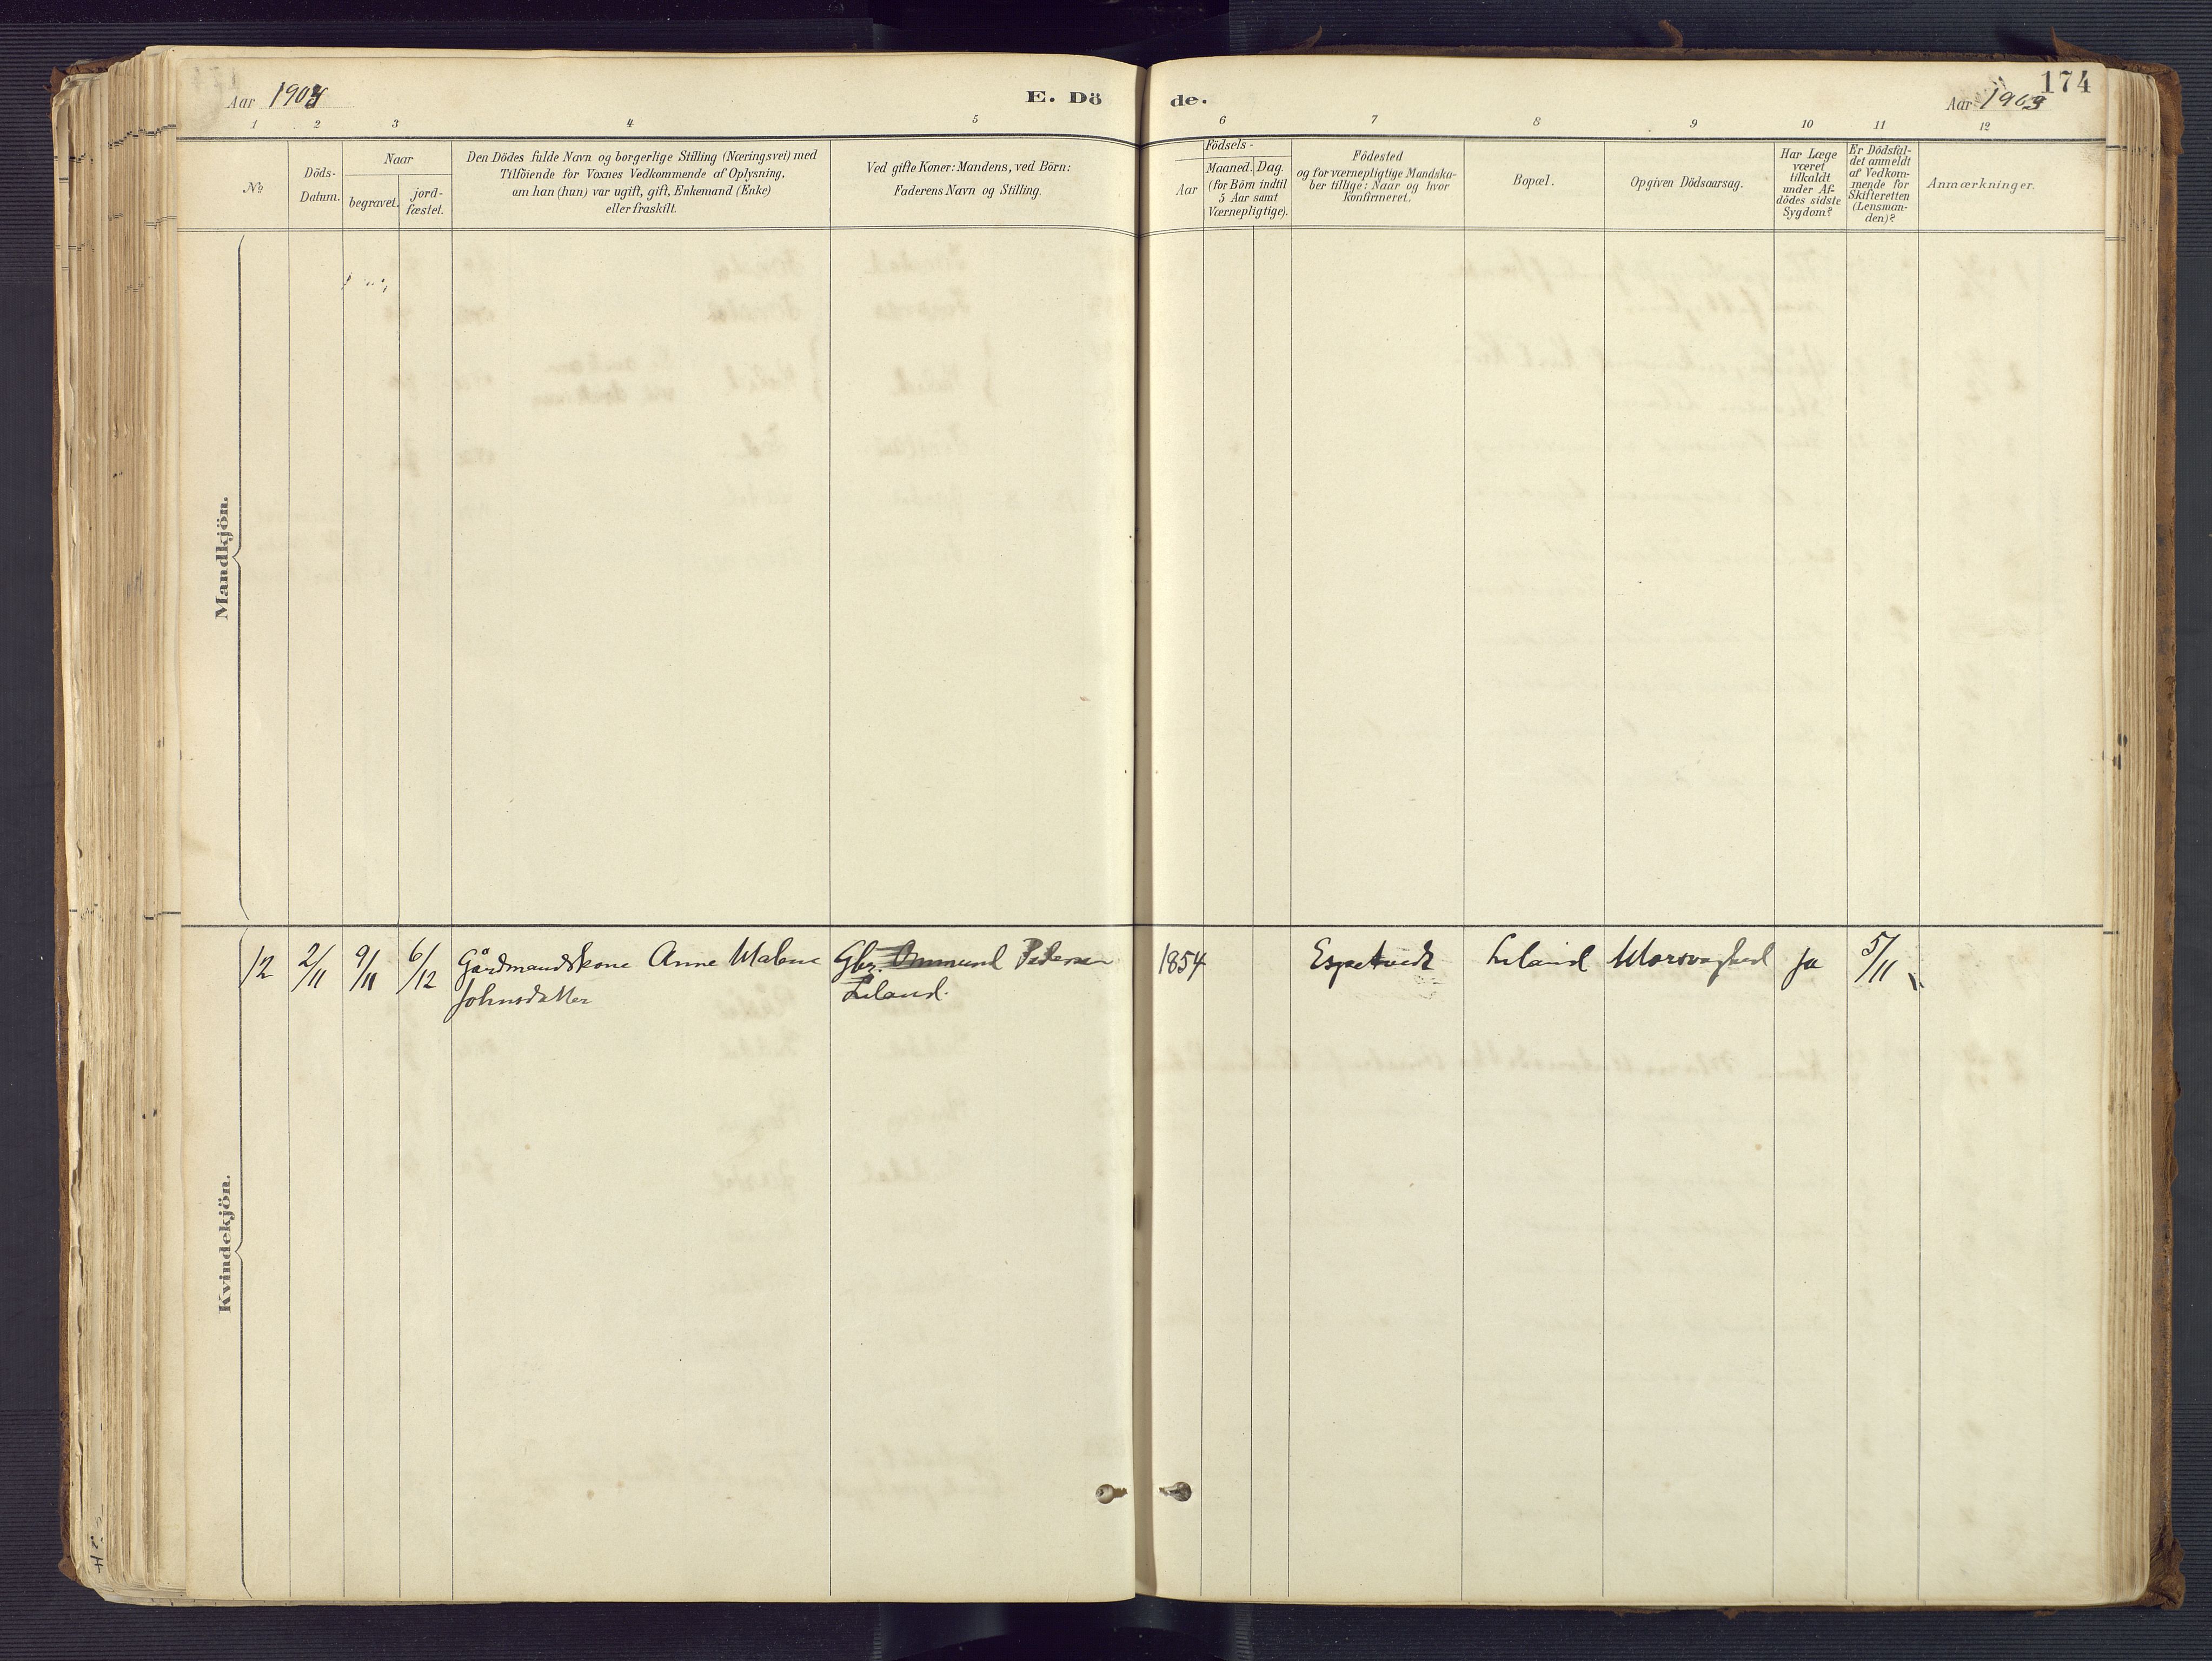 174
Aar 1903
E. Dö
de.
Aar 1903
1 2 3 4 5 6 7 8 9 10 11 12
№
Döds-
Datum.
Naar
begravet.
jord-
fæstet.
Den Dödes fulde Navn og borgerlige Stilling (Næringsvei) med
Tilföiende for Voxnes Vedkommende af Oplysning,
om han (hun) var ugift, gift, Enkemand (Enke)
eller fraskilt.
Ved gifte Koner: Mandens, ved Börn:
Faderens Navn og Stilling.
Födsels-
Aar
Maaned. Dag.
(for Börn indtil
5 Aar samt
Værnepligtige).
Födested
og for værnepligtige Mandska-
ber tillige: Naar og hvor
konfirmeret.
Bopæl.
Opgiven Dödsaarsag.
Har Læge
været
tilkaldt
under Af-
dödes sidste
Sygdom?
Er Dödsfal-
det anmeldt
af Vedkom-
mende for
Skifteretten
(Lensman-
den)?
Anmærkninger.
Mandkjön.
Kvindekjön.
12 2/11 9/11 6/12 Gårdmandskone Anne Malene Gbr. Ommund Pedersen 1854 Espetvedt Leland Marsvaghed Ja 5/11
Johnsdatter Leland.